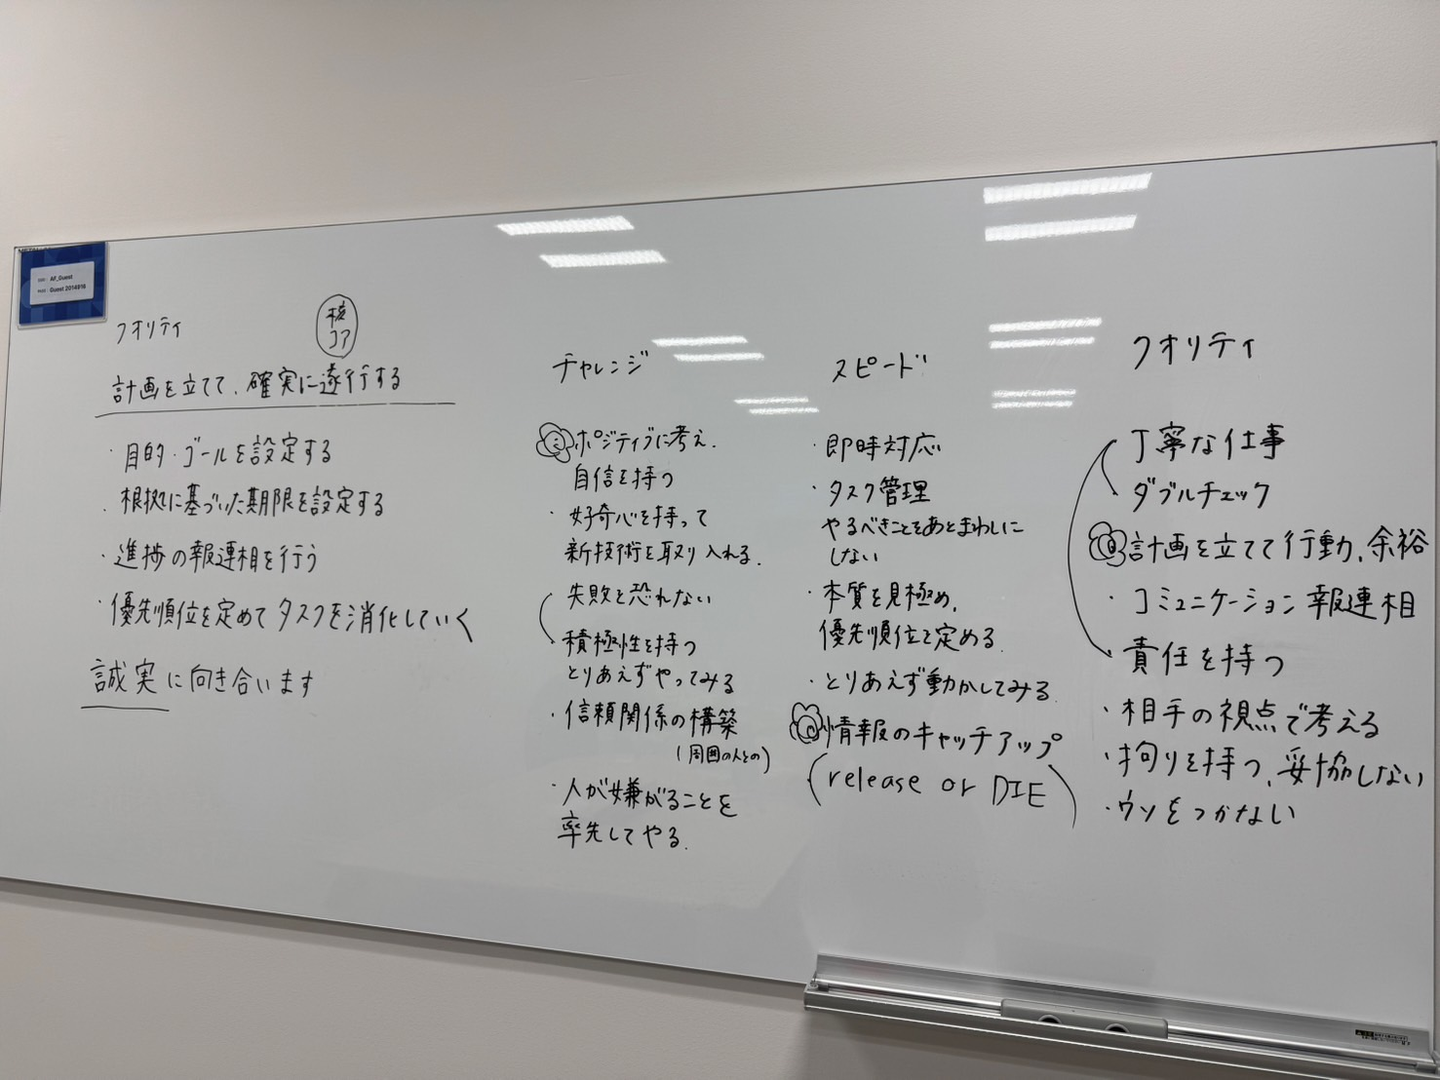 AF_Guest
Guest 2014916
クオリティ
核
コア
計画を立てて、確実に遂行する
・目的・ゴールを設定する
・根拠に基づいた期限を設定する
・進捗の報連相を行う
・優先順位を定めてタスクを消化していく
誠実に向き合います
チャレンジ
ポジティブに考え、
自信を持つ
・好奇心を持って
新技術を取り入れる。
失敗を恐れない
積極性を持つ
とりあえずやってみる
・信頼関係の構築
(周囲の人との)
・人が嫌がることを
率先してやる。
スピード
・即時対応
・タスク管理
やるべきことをあとまわしに
しない
・本質を見極め、
優先順位を定める。
・とりあえず動かしてみる
情報のキャッチアップ
(release or DIE)
クオリティ
丁寧な仕事
ダブルチェック
計画を立てて行動、余裕
・コミュニケーション 報連相
責任を持つ
・相手の視点で考える
・拘りを持つ、妥協しない
・ウソをつかない